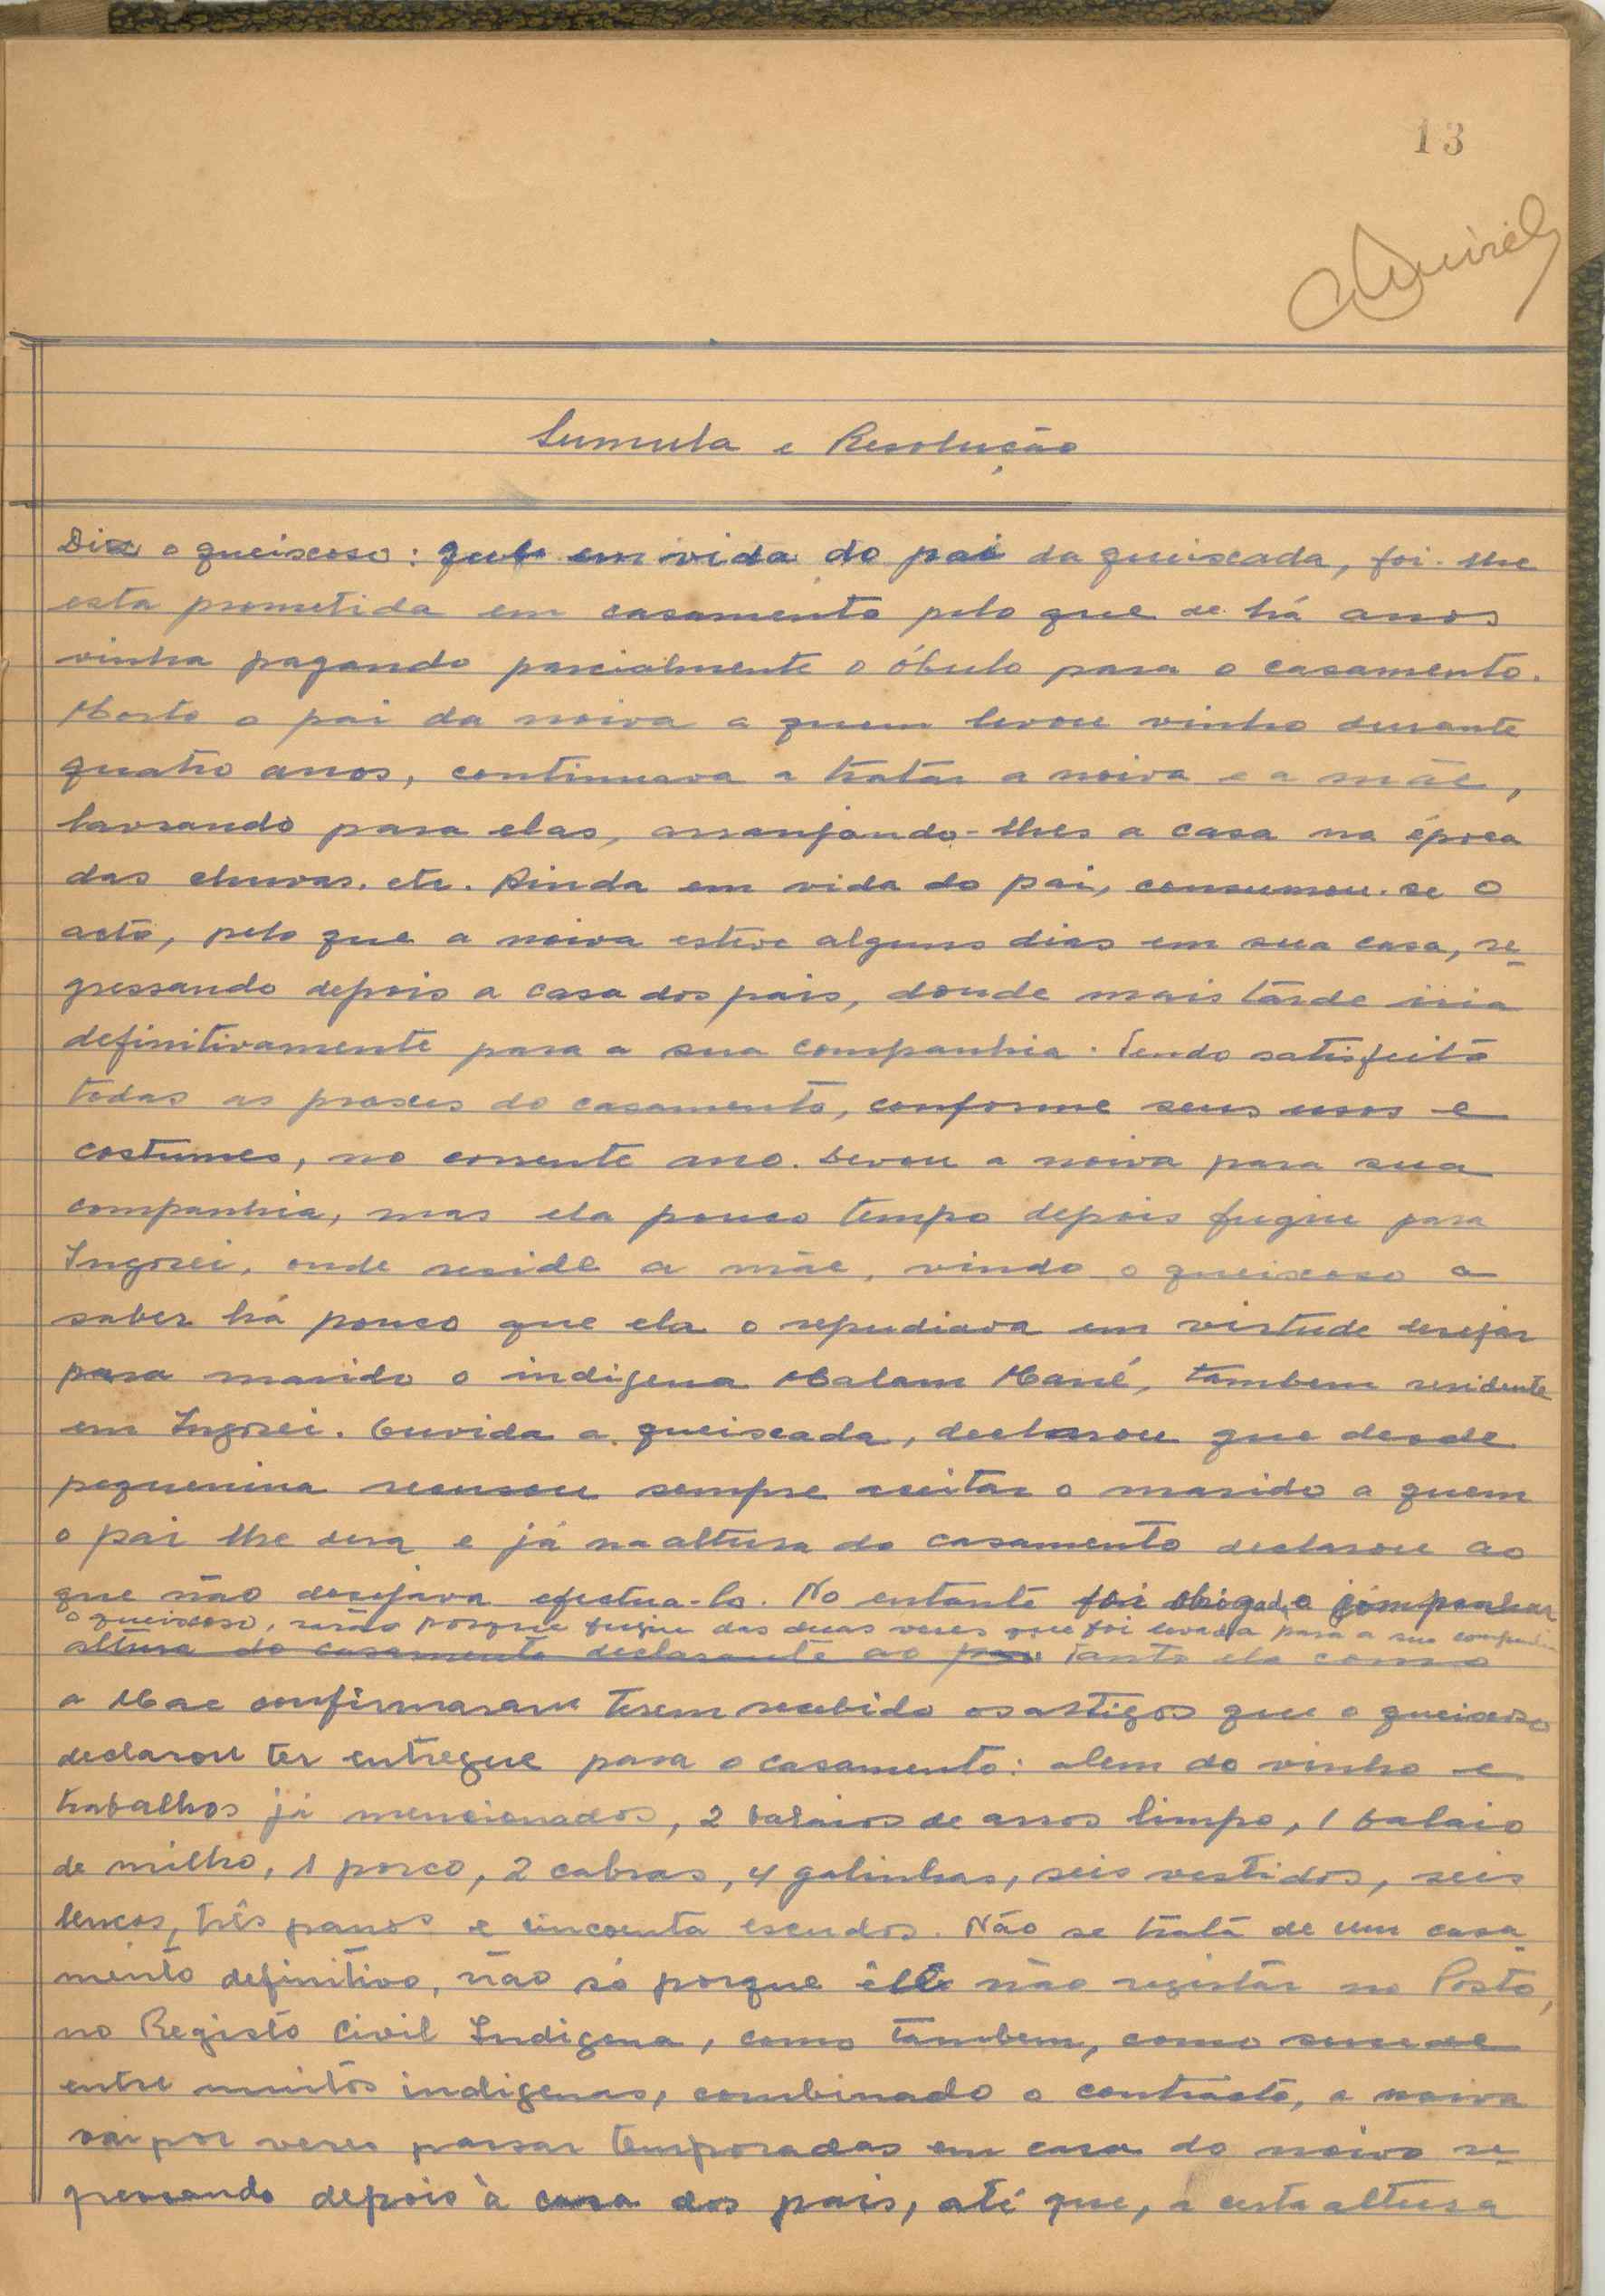 13
Sumula e Resolução
Diz o queixoso: que em vida do pai da queixada, foi-lhe
esta prometida em casamento pelo que de há anos
vinha pagando parcialmente o óbulo para o casamento.
Morto o pai da noiva a quem levou vinho durante
quatro anos, continuava a tratar a noiva e a mãe,
lavrando para elas, arranjando-lhes a casa na época
das chuvas. etc. Ainda em vida do pai, consumou-se o
acto, pelo que a noiva esteve alguns dias em sua casa, re-
gressando depois a casa dos pais, donde mais tarde iria
definitivamente para a sua companhia. Tendo satisfeito
todas as praxes do casamento, conforme seus usos e
costumes, no corrente ano. Levou a noiva para sua
companhia, mas ela pouco tempo depois fugiu para
Ingorei, onde reside a mãe, vindo o queixoso a
saber há pouco que ela o repudiava em virtude desejar
para marido o indigena Malam Mané, tambem residente
em Ingorei. Ouvida a queixada, declarou que desde
pequenina recusou sempre aceitar o marido a quem
o pai lhe dera e já na altura do casamento declarou ao
que não desejava efectua-lo. No entanto foi obrigada a acompanhar
o queixoso, razão porque fugiu das duas vezes que foi levada para a sua companhia
altura do casamento declarante ao pai. Tanto ela como
a Mãe confirmaram terem recebido os artigos que o queixoso
declarou ter entregue para o casamento: alem do vinho e
trabalhos já mencionados, 2 balaios de arros limpo, 1 balaio
de milho, 1 porco, 2 cabras, 4 galinhas, seis vestidos, seis
lenços, três panos e cincoenta escudos. Não se trata de um casa-
mento definitivo, não só porque êle não registar no Posto,
no Registo Civil Indigena, como tambem, como sucede
entre muitos indigenas, combinado o contracto, a noiva
vai por vezes passar temporadas em casa do noivo re-
gressando depois à casa dos pais, até que, a certa altura